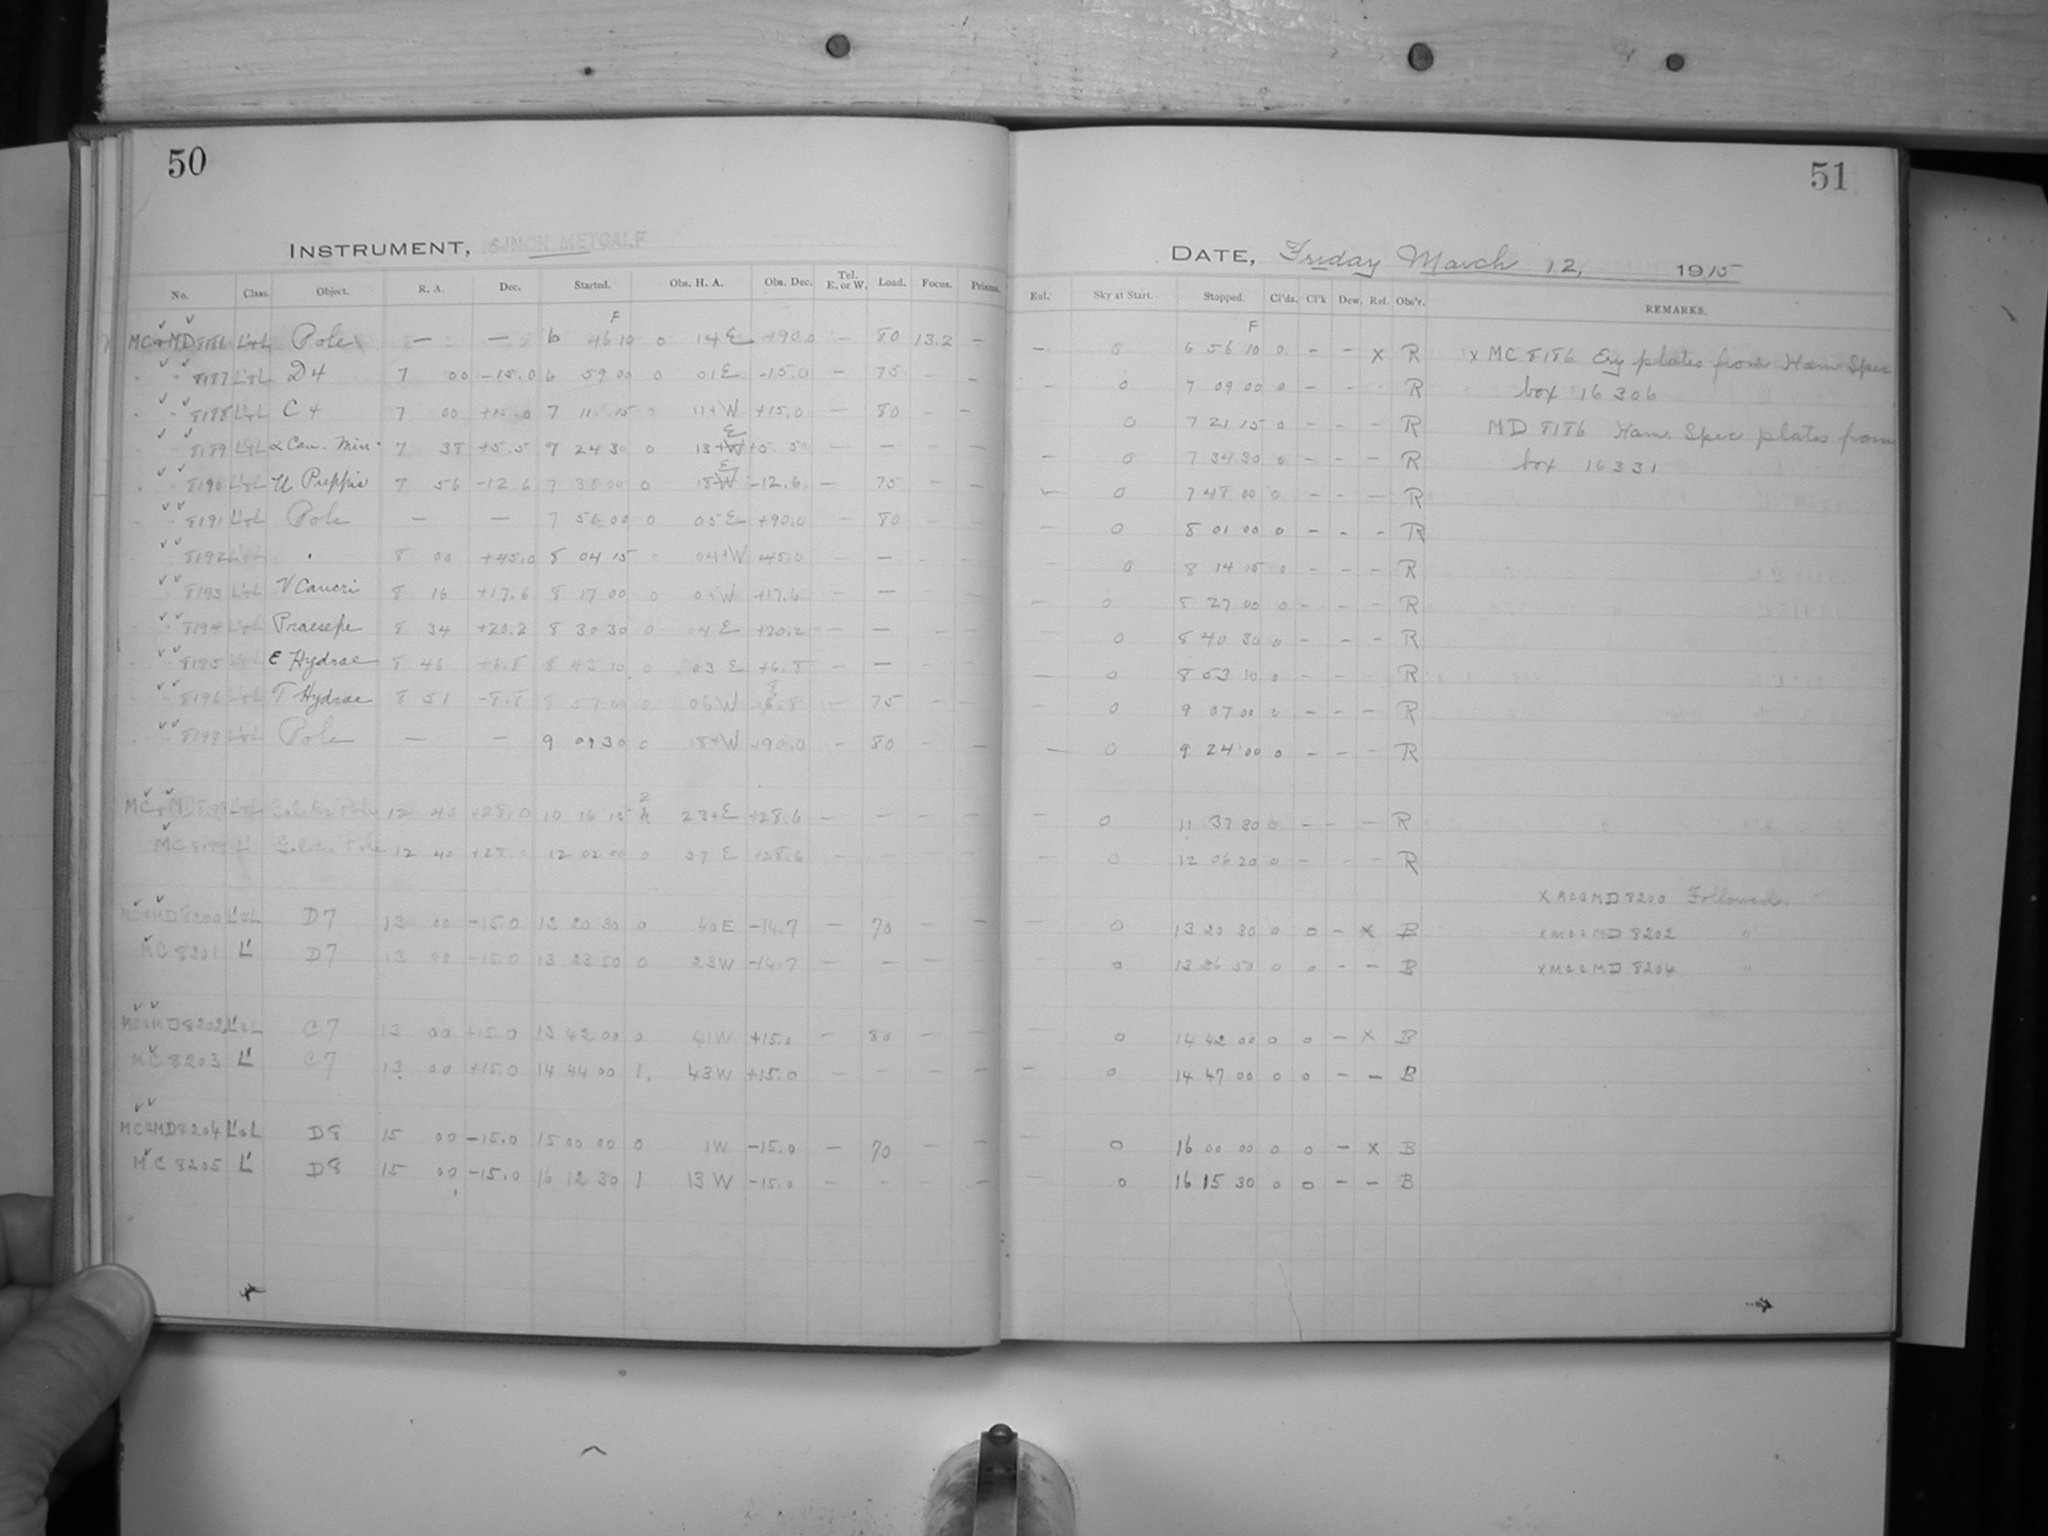 50
51
INSTRUMENT, 16-INCH METCALF
DATE, Friday March 12, 1915
No. Class. Object. R. A. Dec. Started. Obs. H. A. Obs. Dec. Tel. E. or W. Load. Focus. Prisms.
Exl. Sky at Start. Stopped. Cl'ds. Cl'k Dew, Ref. Obs'r. REMARKS.
F
F
MC+MD 8186 L'+L Pole — — 6 46 10 0 14 E +90.0 — 80 13.2 —
— 0 6 56 10 0 — — x R x MC 8186 Ery plates from Ham Spec
8187 L'+L D4 7 00 -15.0 6 59 00 0 01 E -15.0 — 75 — —
— 0 7 09 00 0 — — - R box 16306
8188 L'+L C4 7 00 +15.0 7 11 15 0 11+W +15.0 — 80 — —
0 7 21 15 0 — — — R MD 8186 Ham. Spec plates from
8189 L'+L α Can. Min. 7 38 +5.5 7 24 30 0 13+W E +5.5 — — — —
— 0 7 34 30 0 — — — R box 16331
8190 L'+L U Puppis 7 56 -12.6 7 38 00 0 18 W E -12.6 — 75 — —
— 0 7 48 00 0 — — — R
8191 L'+L Pole — — 7 51 00 0 05 E +90.0 — 80 — —
— 0 8 01 00 0 — — - R
8192 L'+L 8 00 +45.0 8 04 15 0 04+W +45.0 — — — —
— 0 8 14 15 0 — — — R
8193 L'+L V Cancri 8 16 +17.6 8 17 00 0 W +17.6 — — — —
— 0 8 27 00 0 — — — R
8194 L'+L Praesepe 8 34 +20.2 8 30 30 0 04 E +20.2 — — — —
0 8 40 30 0 — — — R
8195 L'+L ε Hydrae 8 46 +6.8 8 43 10 0 03 E +6.8 — — — —
— 0 8 53 10 0 — — — R
8196 L'+L T Hydrae 8 51 -8.8 8 57 00 0 06 W -8.8 — 75 — —
— 0 9 07 00 0 — — — R
L'+L Pole — — 9 09 30 0 18+W +90.0 — 80 — —
— 0 9 24 00 0 — — — R
MC+MD L'+L Pole 12 40 +28.0 10 16 15 2 23+E +28.6 — — — —
— 0 11 37 30 0 — — — R
MC 8199 L' Pole 12 40 +28.0 12 02 00 0 37 E +28.6 — — — —
— 0 12 06 20 0 — — — R
x MC&MD 8200 Followed.
MC&MD 8200 L'&L D7 13 00 -15.0 20 30 0 40 E -14.7 — 70 — —
0 13 20 30 0 0 — x B x MC&MD 8202 "
MC 8201 L' D7 13 00 -15.0 13 23 50 0 23 W -14.7 — — — —
0 13 26 50 0 0 — — B x MC&MD 8204 "
MC&MD 8202 L'&L C7 13 00 +15.0 13 42 00 0 41 W +15.0 — 80 — —
— 0 14 42 00 0 0 — x B
MC 8203 L' C7 13 00 +15.0 14 44 00 1. 43 W +15.0 — — — —
— 0 14 47 00 0 0 — — B
MC&MD 8204 L'&L D8 15 00 -15.0 15 00 00 0 1 W -15.0 — 70 — —
— 0 16 00 00 0 0 — x B
MC 8205 L' D8 15 00 -15.0 16 12 30 1 13 W -15.0 — — — —
— 0 16 15 30 0 0 — — B